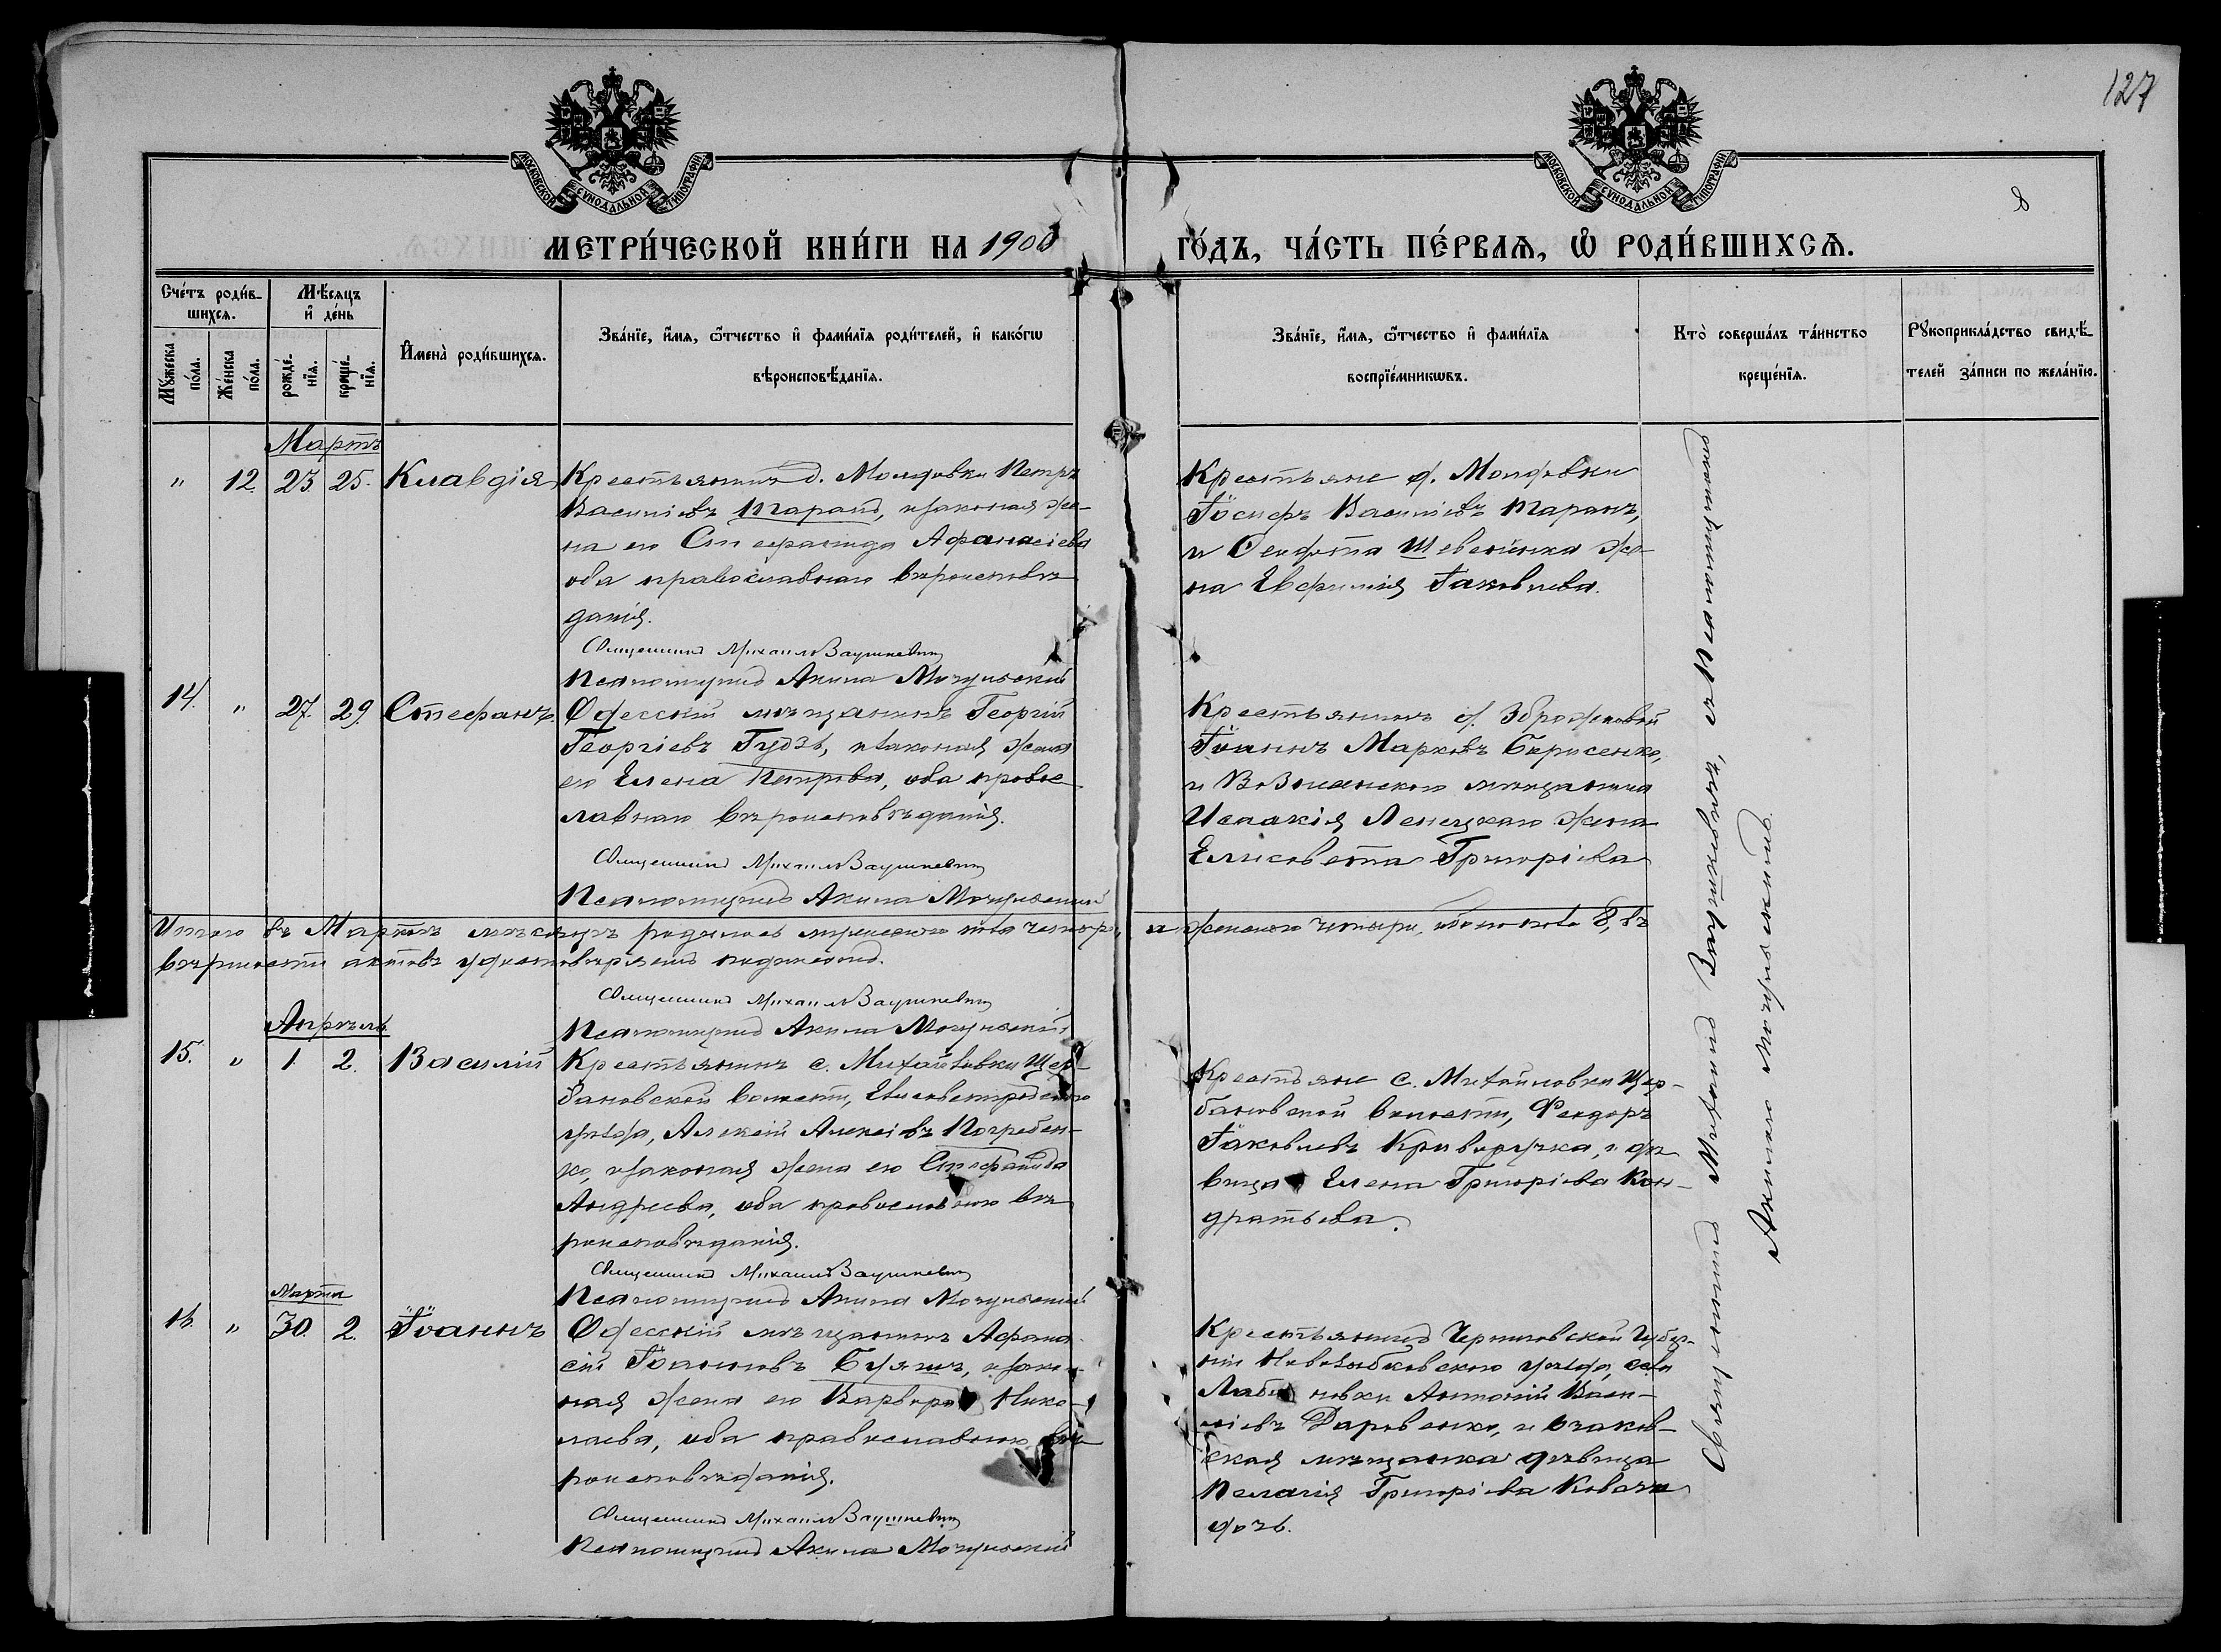 127
8
МОСКОВСКОЙ СѴНОДАЛЬНОЙ ТИПОГРАФІИ.
МОСКОВСКОЙ СѴНОДАЛЬНОЙ ТИПОГРАФІИ.
МЕТРИ́ЧЕСКОЙ КНИ́ГИ НА 1900
ГО́ДЪ, ЧА́СТЬ ПЕ́РВАѦ, Ѽ РОДИ́ВШИХСѦ.
Сче́тъ роди́в-
шихсѧ.
Мѣ́сѧцъ
и҆ де́нь
Мꙋ́жеска по́ла.
Же́нска по́ла.
рожде́-нїѧ.
креще́-нїѧ.
И҆мена̀ роди́вшихсѧ.
Зва́нїе, и҆́мѧ, ѻ҆́тчество и҆ фами́лїѧ роди́телей, и҆ како́гѡ
вѣроисповѣ́данїѧ.
Зва́нїе, и҆́мѧ, ѻ҆́тчество и҆ фами́лїѧ
воспрїе́мникѡвъ.
Кто̀ соверша́лъ та́инство
креще́нїѧ.
Рꙋкоприкла́дство свидѣ́-
телей за́писи по жела́нїю.
Мартъ
" 12. 23. 25. Клавдія
Крестьянинъ д. Молдовки Петръ
Василіевъ Таранъ, и законная же-
на его Стефанида Афанасіева
оба православнаго вѣроисповѣ
данія.
Священникъ Михаилъ Вачушкевичъ
Псаломщикъ Акила Могульскій
Крестьяне д. Молдовки
Іосифъ Василіевъ Таранъ,
и Феодота Шевченка же-
на Евфимія Іаковлева.
14. " 27. 29. Стефанъ.
Одесскій мѣщанинъ Георгій
Георгіевъ Гудзь, и законная жена
его Елена Петрова, оба правос
лавнаго вѣроисповѣданія.
Священникъ Михаилъ Вачушкевичъ
Псаломщикъ Акила Могульскій
Крестьянинъ д.
Іоаннъ Марковъ Борисенко,
и Вознесенскаго мѣщанина
Исаакія Ленецкаго жена
Елисавета Григоріева
Итого въ Мартѣ мѣсяцѣ родилось мужескаго пола четыре, и женскаго четыре, обоего пола 8, въ
вѣрности актовъ удостовѣряемъ подписомъ.
Священникъ Михаилъ Вачушкевичъ
Псаломщикъ Акила Могульскій
Апрѣль
15. " 1. 2. Василій
Крестьянинъ с. Михайловки Щер-
бановской волости, Елисаветградскаго
уѣзда, Алексій Алексіевъ Погребен-
ко, и законная жена его Стефанида
Андреева, оба православнаго вѣ
роисповѣданія.
Священникъ Михаилъ Вачушкевичъ
Псаломщикъ Акила Могульскій
Крестьяне с. Михайловки Щер-
бановской волости, Феодоръ
Іаковлевъ Криворучка, и дѣ
вица Елена Григоріева Кон-
дратьева.
Марта
16. " 30. 2. Іоаннъ
Одесскій мѣщанинъ Афана
сій Іоанновъ и закон-
ная жена его Варвара Нико-
лаева, оба православнаго вѣ
роисповѣданія.
Священникъ Михаилъ Вачушкевичъ
Псаломщикъ Акила Могульскій
Крестьянинъ Черниговской Губер-
ніи Новозыбковскаго уѣзда, села
Антоній Васи-
ліевъ Даровенко, и Очаков-
ская мѣщанка дѣвица
Пелагія Григоріева Коваче
дочь.
Священникъ Михаилъ Вачушкевичъ, съ Псаломщикомъ
Акилою Могульскимъ.